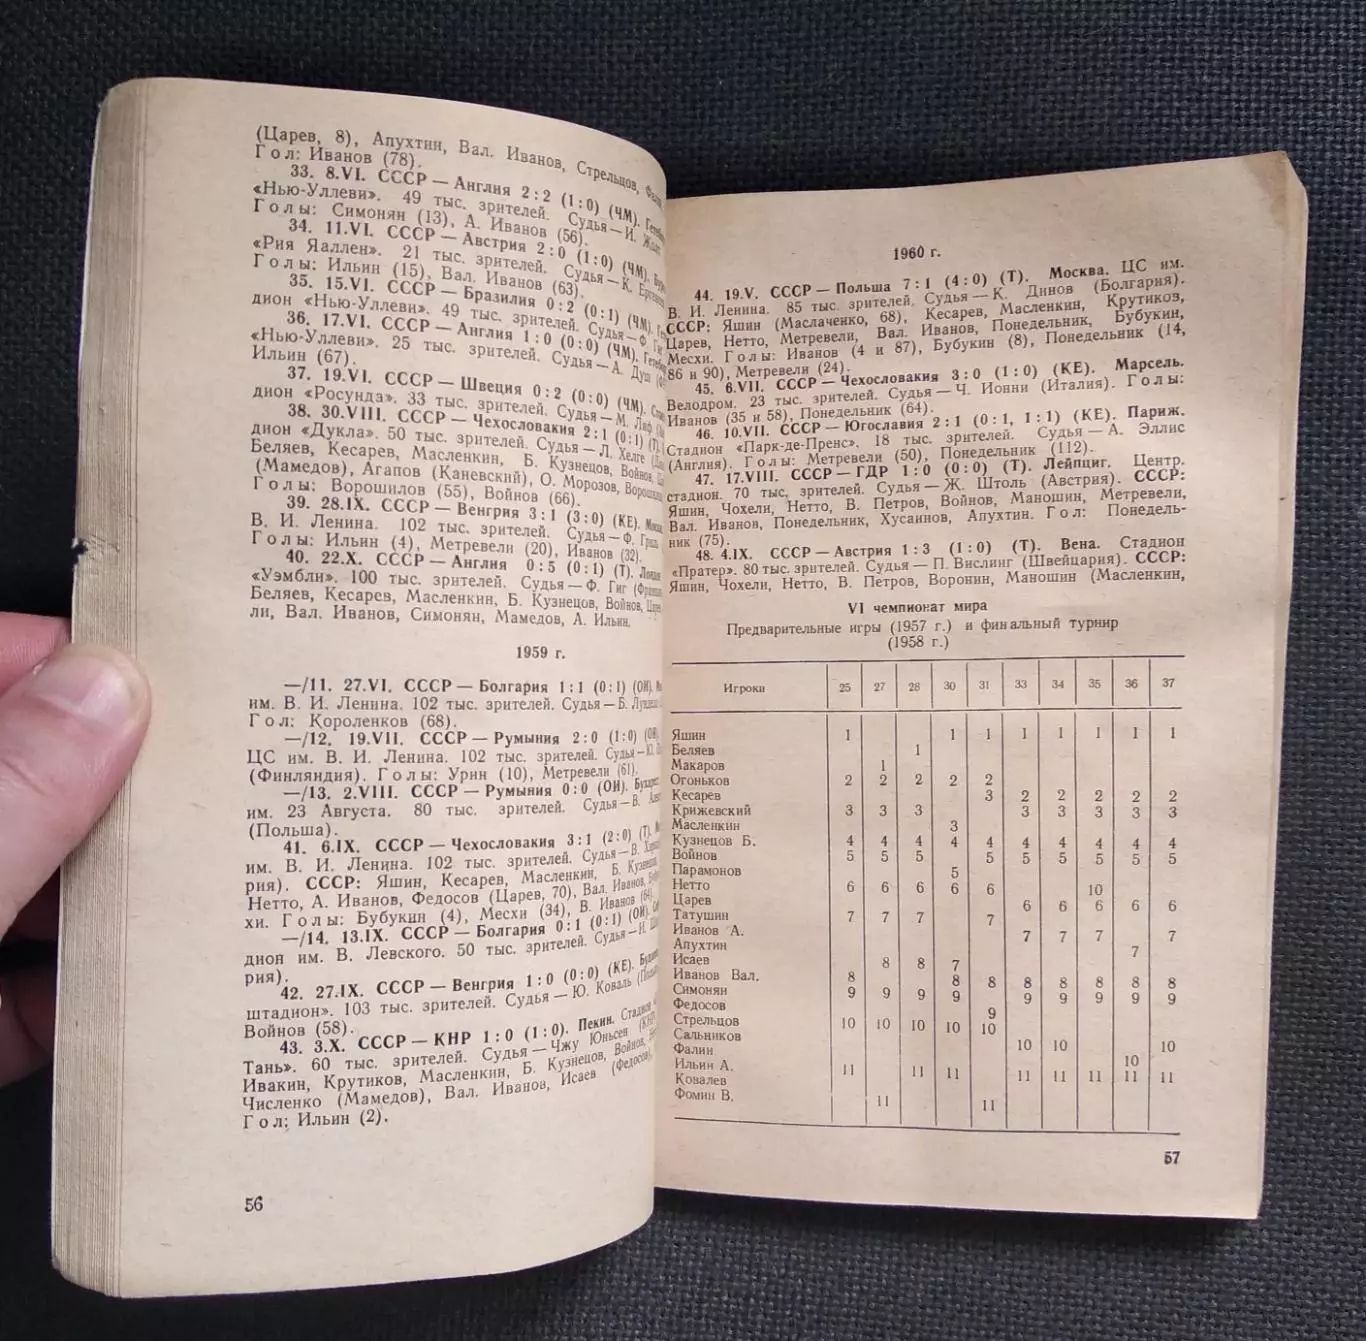 (Царев, 8), Апухтин, Вал. Иванов, Стрельцов,
Гол: Иванов (78).
33. 8.VI. СССР — Англия 2:2 (1:0) (ЧМ).
«Нью-Уллеви». 49 тыс. зрителей. Судья — И.
Голы: Симонян (13), А. Иванов (56).
34. 11.VI. СССР — Австрия 2:0 (1:0) (ЧМ).
«Рия Яаллен». 21 тыс. зрителей. Судья — К.
Голы: Ильин (15), Вал. Иванов (63).
35. 15.VI. СССР — Бразилия 0:2 (0:1) (ЧМ).
дион «Нью-Уллеви». 49 тыс. зрителей. Судья —
36. 17.VI. СССР — Англия 1:0 (0:0) (ЧМ).
«Нью-Уллеви». 25 тыс. зрителей. Судья — А. Душ
Ильин (67).
37. 19.VI. СССР — Швеция 0:2 (0:0) (ЧМ).
дион «Росунда». 33 тыс. зрителей. Судья — М.
38. 30.VIII. СССР — Чехословакия 2:1 (0:1) (Т).
дион «Дукла». 50 тыс. зрителей. Судья — Л. Хелге
Беляев, Кесарев, Масленкин, Б. Кузнецов, Войнов,
(Мамедов), Агапов (Каневский), О. Морозов,
Голы: Ворошилов (55), Войнов (66).
39. 28.IX. СССР — Венгрия 3:1 (3:0) (КЕ).
В. И. Ленина. 102 тыс. зрителей. Судья — Ф.
Голы: Ильин (4), Метревели (20), Иванов (32).
40. 22.X. СССР — Англия 0:5 (0:1) (Т).
«Уэмбли». 100 тыс. зрителей. Судья — Ф. Гиг
Беляев, Кесарев, Масленкин, Б. Кузнецов, Войнов,
ли, Вал. Иванов, Симонян, Мамедов, А. Ильин.
1959 г.
—/11. 27.VI. СССР — Болгария 1:1 (0:1) (ОИ).
им. В. И. Ленина. 102 тыс. зрителей. Судья — Б.
Гол: Короленков (68).
—/12. 19.VII. СССР — Румыния 2:0 (1:0)
ЦС им. В. И. Ленина. 102 тыс. зрителей. Судья — Ю.
(Финляндия). Голы: Урин (10), Метревели (61).
—/13. 2.VIII. СССР — Румыния 0:0 (ОИ).
им. 23 Августа. 80 тыс. зрителей. Судья — В.
(Польша).
41. 6.IX. СССР — Чехословакия 3:1 (2:0) (Т).
им. В. И. Ленина. 102 тыс. зрителей. Судья — В.
рия). СССР: Яшин, Кесарев, Масленкин, Б. Кузнецов,
Нетто, А. Иванов, Федосов (Царев, 70), Вал. Иванов,
хи. Голы: Бубукин (4), Месхи (34), В. Иванов (64).
—/14. 13.IX. СССР — Болгария 0:1 (0:1) (ОИ).
дион им. В. Левского. 50 тыс. зрителей. Судья — И.
рия).
42. 27.IX. СССР — Венгрия 1:0 (0:0) (КЕ).
штадион». 103 тыс. зрителей. Судья — Ю. Коваль
Войнов (58).
43. 3.X. СССР — КНР 1:0 (1:0). Пекин. Стадион
Тань». 60 тыс. зрителей. Судья — Чжу Юньсен (КНР)
Ивакин, Крутиков, Масленкин, Б. Кузнецов, Войнов,
Численко (Мамедов), Вал. Иванов, Исаев (Федосов),
Гол: Ильин (2).
56
1960 г.
44. 19.V. СССР — Польша 7:1 (4:0) (Т). Москва. ЦС им.
В. И. Ленина. 85 тыс. зрителей. Судья — К. Динов (Болгария).
СССР: Яшин (Маслаченко, 68), Кесарев, Масленкин, Крутиков,
Царев, Нетто, Метревели, Вал. Иванов, Понедельник, Бубукин,
Месхи. Голы: Иванов (4 и 87), Бубукин (8), Понедельник (14,
86 и 90), Метревели (24).
45. 6.VII. СССР — Чехословакия 3:0 (1:0) (КЕ). Марсель.
Велодром. 23 тыс. зрителей. Судья — Ч. Ионни (Италия). Голы:
Иванов (35 и 58), Понедельник (64).
46. 10.VII. СССР — Югославия 2:1 (0:1, 1:1) (КЕ). Париж.
Стадион «Парк-де-Пренс». 18 тыс. зрителей. Судья — А. Эллис
(Англия). Голы: Метревели (50), Понедельник (112).
47. 17.VIII. СССР — ГДР 1:0 (0:0) (Т). Лейпциг. Центр.
стадион. 70 тыс. зрителей. Судья — Ж. Штоль (Австрия). СССР:
Яшин, Чохели, Нетто, В. Петров, Войнов, Маношин, Метревели,
Вал. Иванов, Понедельник, Хусаинов, Апухтин. Гол: Понедель-
ник (75).
48. 4.IX. СССР — Австрия 1:3 (1:0) (Т). Вена. Стадион
«Пратер». 80 тыс. зрителей. Судья — П. Вислинг (Швейцария). СССР:
Яшин, Чохели, Нетто, В. Петров, Воронин, Маношин (Масленкин,
VI чемпионат мира
Предварительные игры (1957 г.) и финальный турнир
(1958 г.)
Игроки 25 27 28 30 31 33 34 35 36 37
Яшин 1 1 1 1 1 1 1 1
Беляев 1
Макаров 1
Огоньков 2 2 2 2 2
Кесарев 3 2 2 2 2 2
Крижевский 3 3 3 3 3 3 3 3
Масленкин 3
Кузнецов Б. 4 4 4 4 4 4 4 4 4 4
Войнов 5 5 5 5 5 5 5 5 5
Парамонов 5
Нетто 6 6 6 6 6 10
Царев 6 6 6 6 6
Татушин 7 7 7 7
Иванов А. 7 7 7 7
Апухтин 7
Исаев 8 8 7
Иванов Вал. 8 8 8 8 8 8 8 8
Симонян 9 9 9 9 9 9 9 9 9
Федосов 9
Стрельцов 10 10 10 10 10
Сальников 10 10 10
Фалин 10
Ильин А. 11 11 11 11 11 11 11 11
Ковалев
Фомин В. 11 11
57